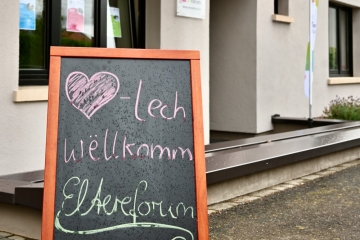 -lech
wëllkomm
Elternforum